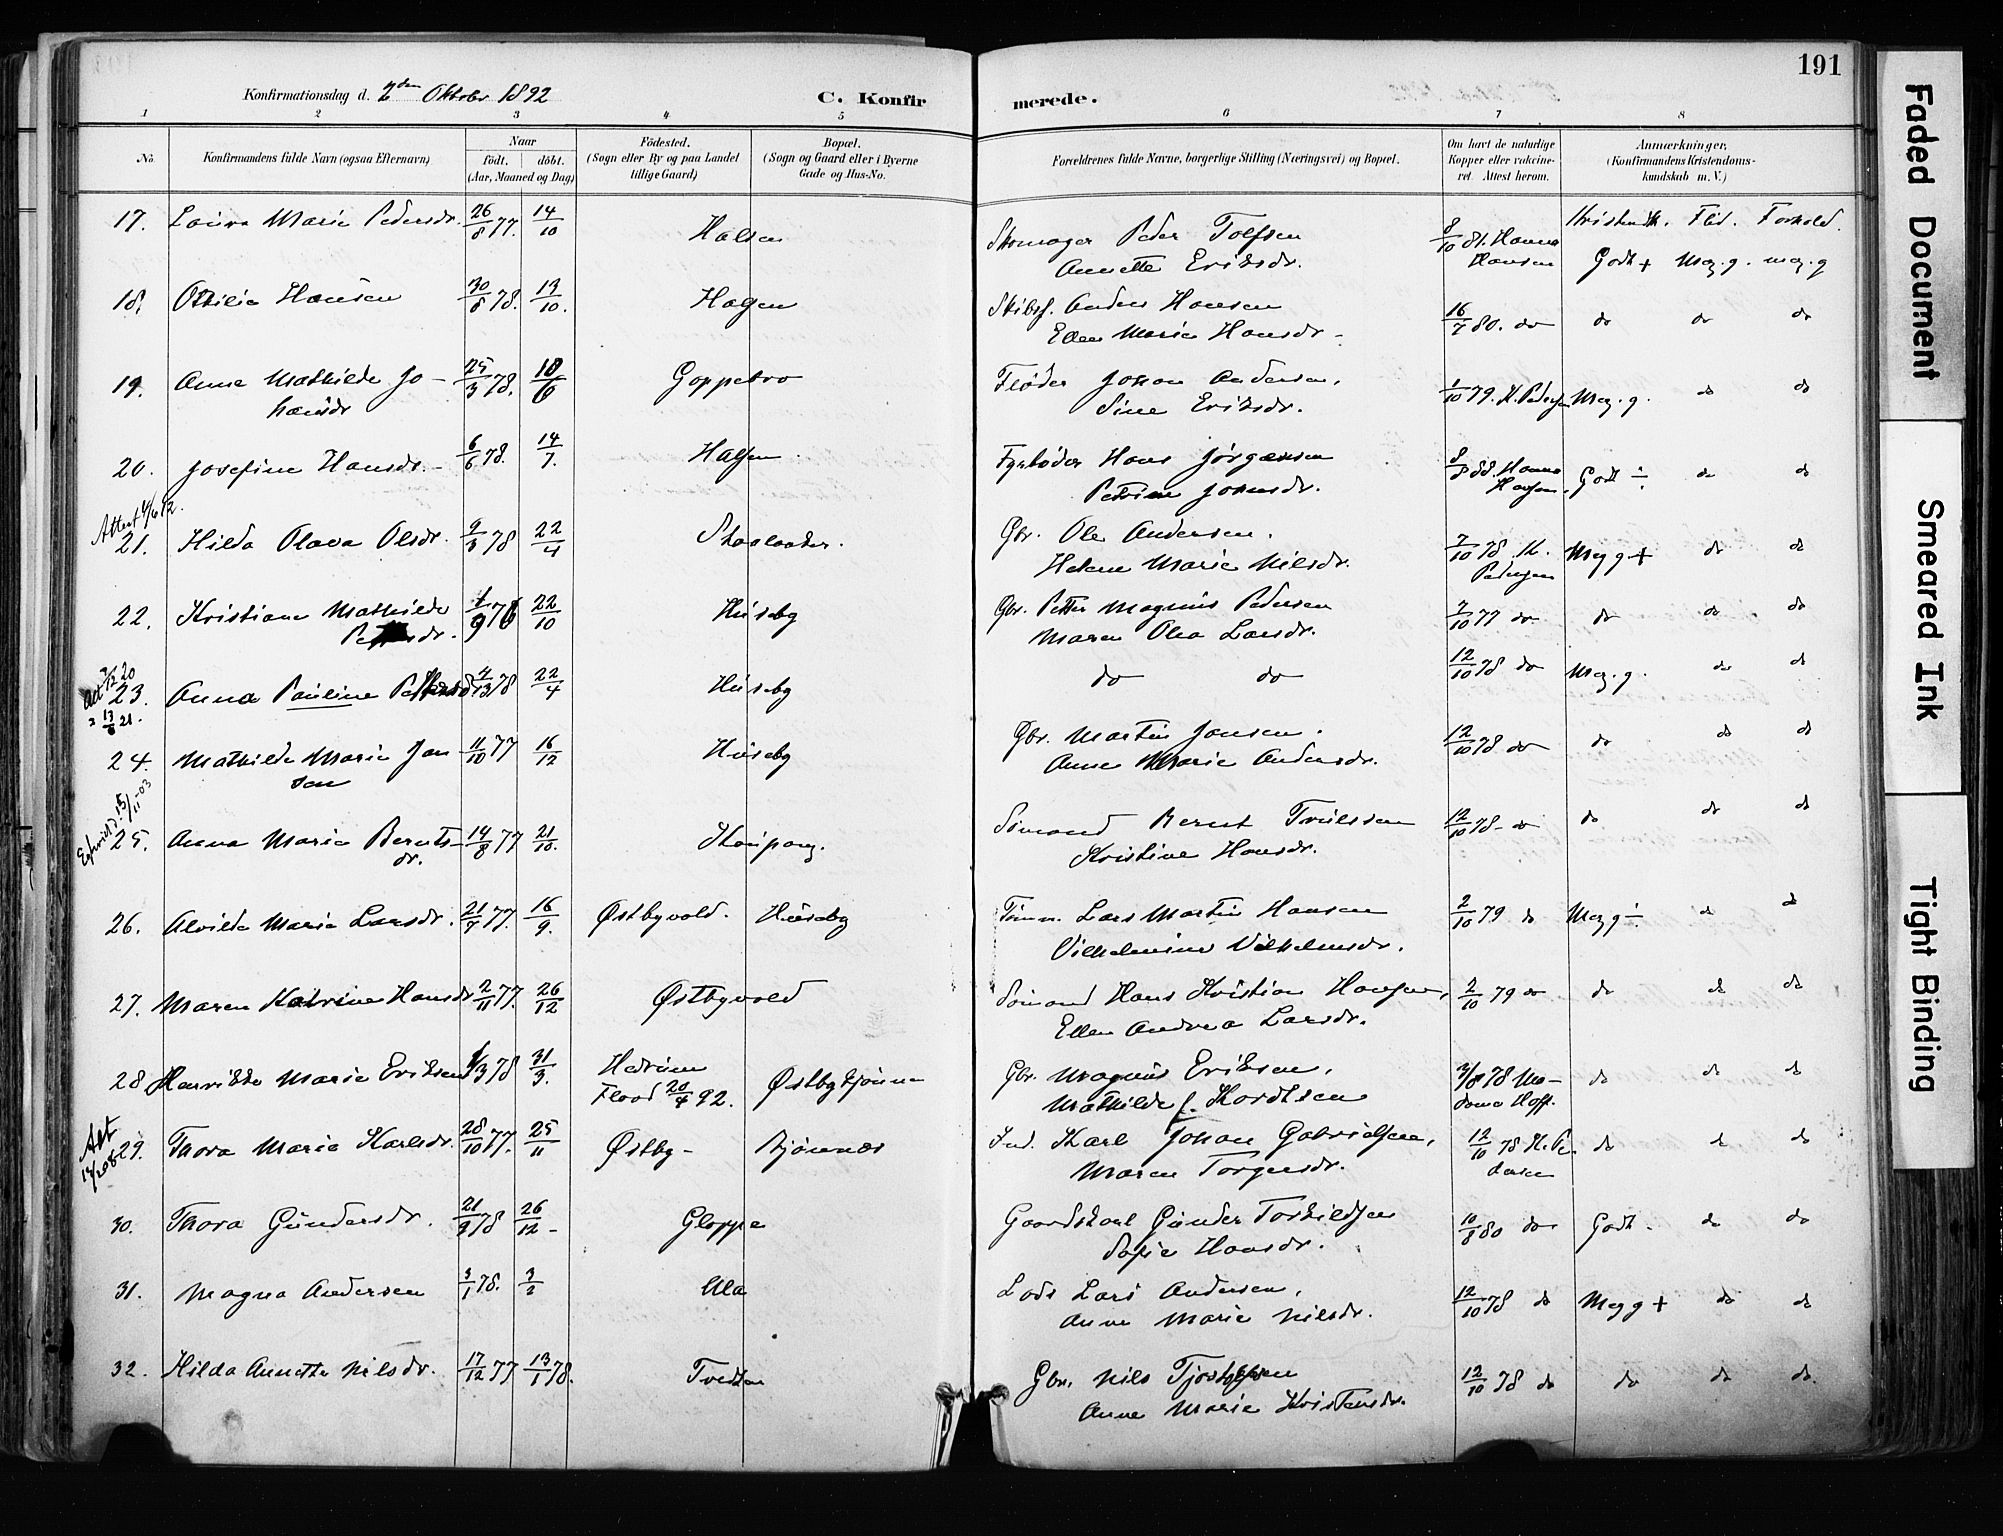 191
Konfirmationsdag d. 2den Oktober 1892
C. Konfirmerede.
1 2 3 4 5 6 7 8
No. Konfirmandens fulde Navn (ogsaa Efternavn). Naar født. døbt. (Aar, Maaned og Dag) Fødested. (Sogn eller By og paa Landet tillige Gaard) Bopæl. (Sogn og Gaard eller i Byerne Gade og Hus-No. Forældrenes fulde Navne, borgerlige Stilling (Næringsvei) og Bopæl. Om havt de naturlige Kopper eller vaccineret. Attest herom. Anmærkninger. (Konfirmandens Kristendomskundskab m. V.)
Kristendk. Flid. Forhold.
17. Laura Marie Pedersdr. 26/8 77. 14/10 Halsen Skomager Peder Tolfsen 8/10 81. Hanna
Annette Eriksdr. Hansen Godt + Meg. g. meg. g
18. Otilie Hansen 30/8 78. 13/10. Halsen Skibsf. Anders Hansen 16/7 80. do do do do
Ellen Marie Hansdr.
19. Anne Mathilde Jo- 25/3 78. 10/6 Goppebro Fløder Johan Andersen, 1/10 79. K. Pedersen Meg. g. do do
hansdr Sine Eriksdr.
20. Josefine Hansdr. 6/6 78. 14/7. Halsen Fyrbøder Hans Jørgensen Hanna Godt ÷ do do
Petrine Johnsdr. Hansen
Attest 4/6 12.
21. Hilda Olava Olsdr. 9/3 78 22/4 Skaalaaker. Gbr. Ole Andersen. 7/10 78 K. Meg g + do do
Helene Marie Nilsdr. Pedersen
22. Kristiane Mathilde 22/10 Huseby Gbr. Petter Magnus Pedersen 7/10 77 do do do do
Maren Olea Larsdr.
Att 20
23. Anna Pauline Pettersdr 78 22/4 Huseby do do 12/10 78 do Meg. g. do do
13/8 21.
24. Mathilde Marie Jan 11/10 77 16/12 Huseby Gbr. Martin Jansen. 12/10 78 do do do do
sen Anne Marie Andersdr.
15/11 -03
25. Anna Marie Bernts- 14/8 77 21/10. Kaupang. Sømand Bernt Trulssen 12/10 78 do do do do
dr. Kristine Hansdr.
26. Alvilde Marie Larsdr. 21/7 77. 16/9. Østbyvold. Huseby Tømm. Lars Martin Hansen 2/10 79 do Meg g ÷ do do
Vilhelmine Vilhelmsdr.
27. Maren Katrine Hansdr 2/11 77. 26/12 Østbyvold Sømand Hans Kristian Hansen, 2/10 79 do do do do
Ellen Andrea Larsdr.
28 Henrikke Marie Eriksen 1/3 78 31/3. Hedrum Østby Bjønnes Gbr. Magnus Eriksen, 78 Ma- do do do
Flaad 20/4 92. Mathilde f. Kordtsen dame Hoff.
Att
29. Thora Marie Karlsdr. 28/10 77. 25/11 Østby - Bjønnæs Ind. Karl Johan Gabrielsen, 12/10 78 K. Pe do do do
Maren Torgersdr. dersen
30. Thora Gundersdr. 21/9 78 26/12 - Gloppe Gaardskarl Gunder Torkildsen 10/8 80 do Godt. do do
Sofie Hansdr.
31. Magna Andersen 3/1 78. 3/2 Ula Lods Lars Andersen, 12/10 78 do Meg g + do do
Anne Marie Nilsdr.
32. Hilda Annette Nilsdr. 17/12 77 13/1 78. Tvedten Gbr. Nils 12/10 78 do do do do
Anne Marie Kristensdr.
Faded Document
Smeared Ink
Tight Binding